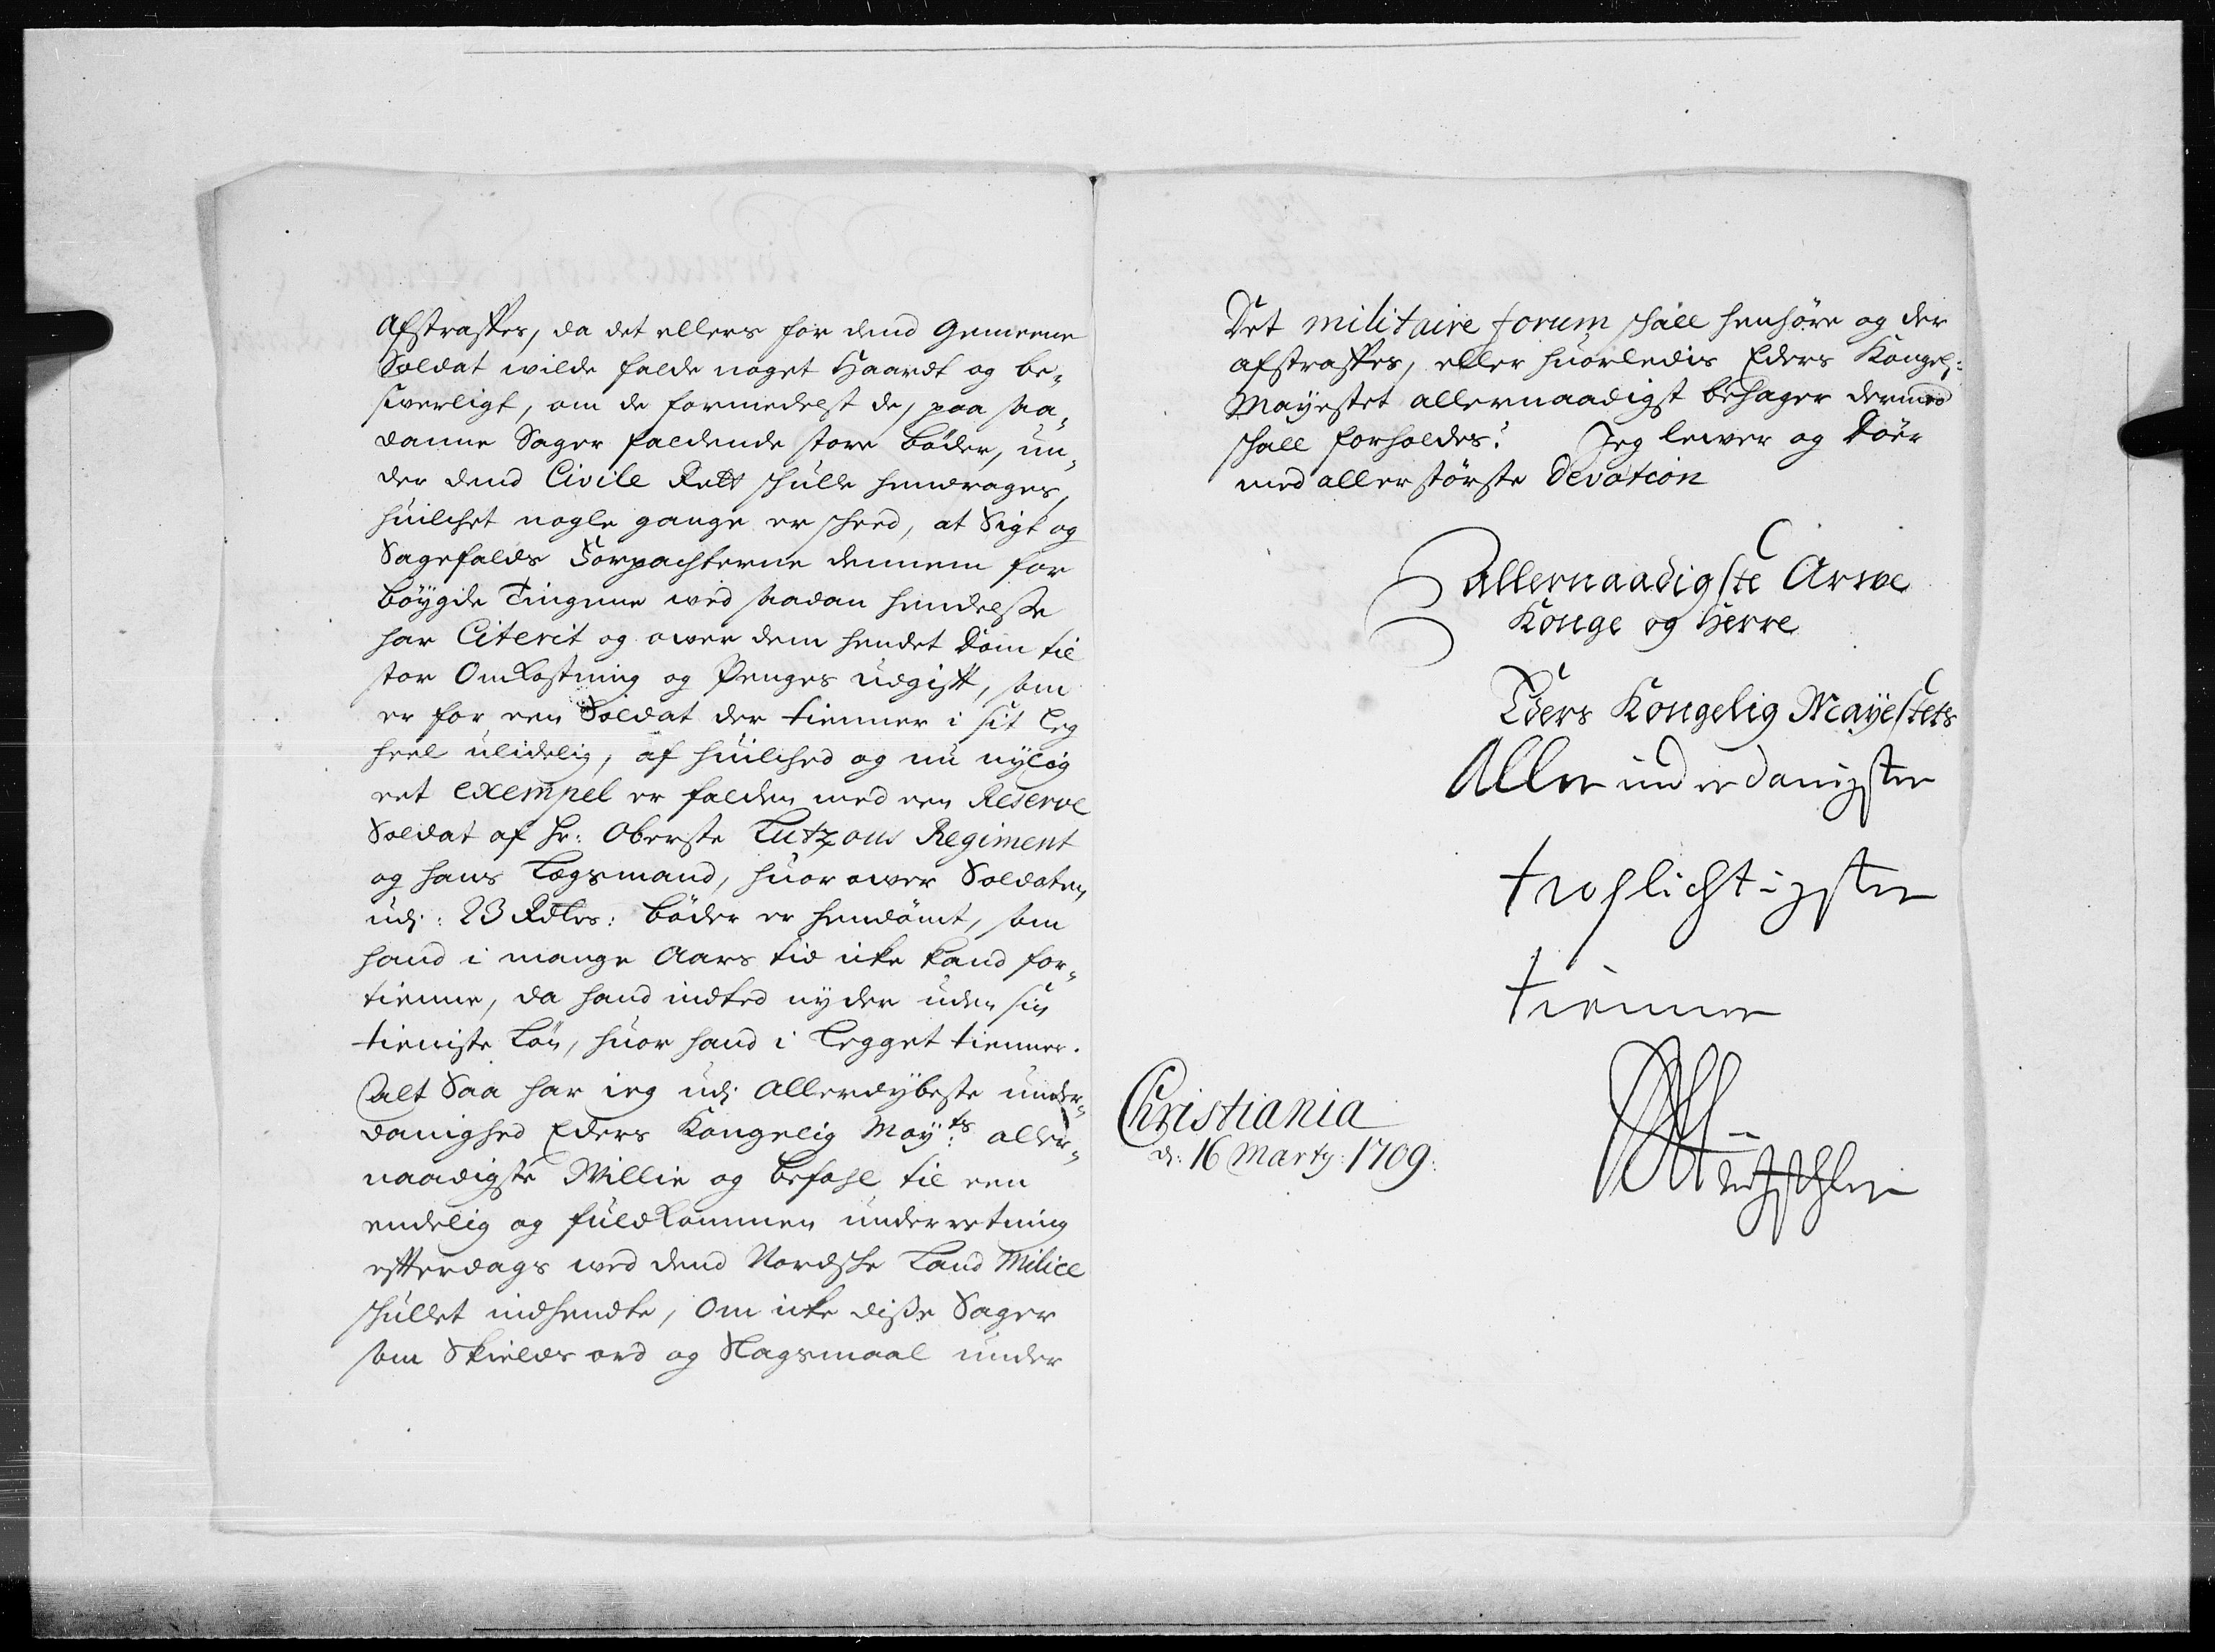 Afstraffes, da det ellers for dend Gemeene
Soldat wilde falde noget Haardt og be-
swerligt, om de formedelst de, paa saa-
danne Sager faldende store bøder, un-
der dend Civile Rett skulle hendrages,
huilchet nogle gange er skeed, at Sigt og
Sagefalds Forpachterne dennem for
bøygde Tingene wed saadan hendelse
har Citerit og ower dem hendet Dom til
stor Omkostning og Penges udgift, som
er for een Soldat der tienner i sit Leg
heel ulidelig, af huilched og nu nylig
eet exempel er falden med een Reserve
Soldat af Hr: Oberste Lutzous Regiment
og hans Legsmand, huor ower Soldaten
udj: 23 Rdlrs: bøder er hendømt, som
hand i mange Aars tid icke kand for-
tienne, da hand indted nyder uden sin
tieniste Løn, huor hand i Legget tienner.
Alt Saa har ieg udj Allerdybeste under-
danighed Eders Kongelig May:ts aller-
naadigste Willie og befahl til een
endelig og fuldkommen underretning
efterdags wed dend Nordske Land Milice
skullet indhendte, Om icke disse Sager
som Skields ord og Slagsmaal under
Det militaire forum skall henhøre og der
afstraffes, eller huorledis Eders Kongel:
Mayestet allernaadigst behager dermed
skall forholdes? Jeg lewer og Døer
med allerstørste Devotion
Allernaadigste Arwe
Konge og Herre
Eders Kongelig Mayestets
Allerunderdanigster
tropflichtigster
tienner
Christiania
d: 16 Marty: 1709: